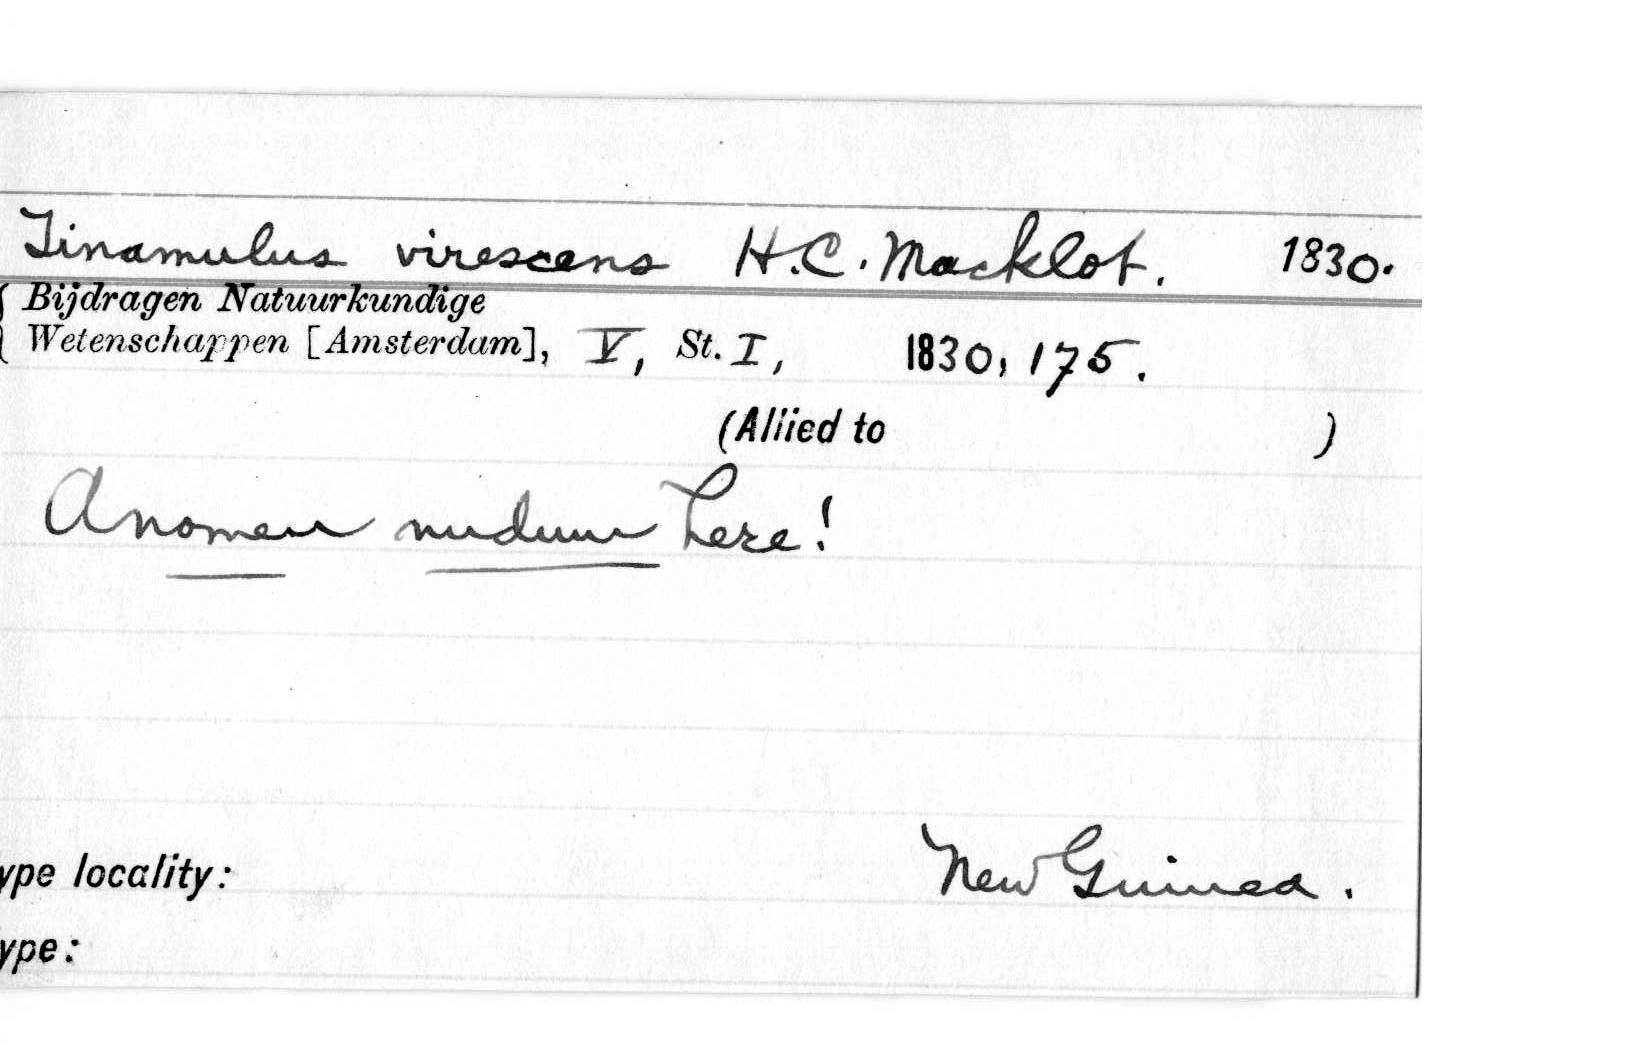 Tinamulus virescens H.C. Macklot. 1830.
Bijdragen Natuurkundige
Wetenschappen [Amsterdam], V, St. I, 1830, 175.
(Allied to )
A nomen nudum here!
ype locality: New Guinea.
ype: